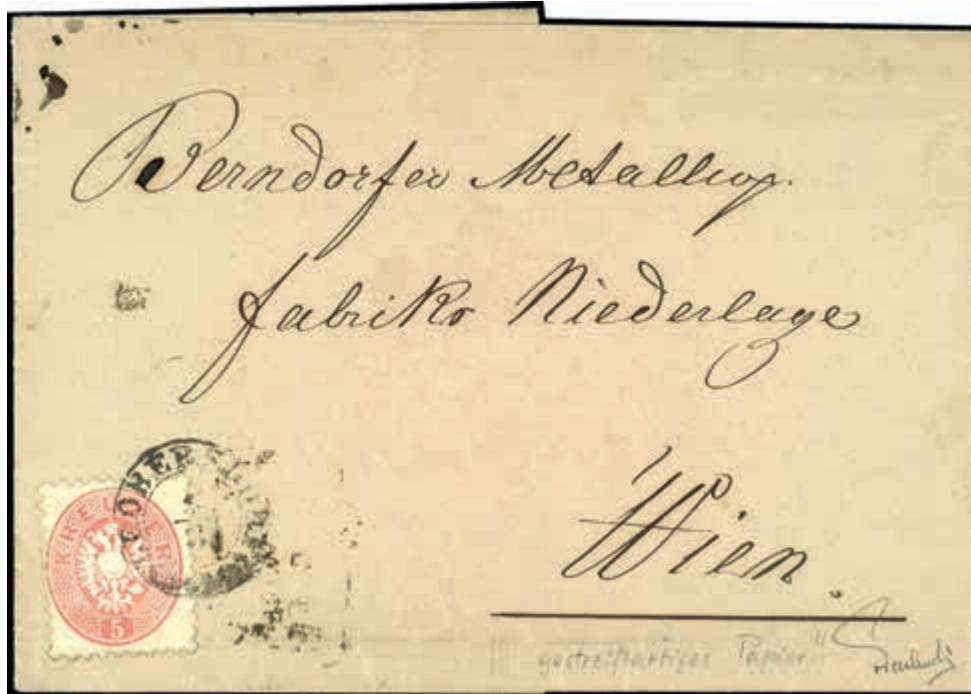 Berndorfer Metallwp.
fabriks Niederlage
Wien.
OBER
KREUZER
5
gestreiftartiges Papier"